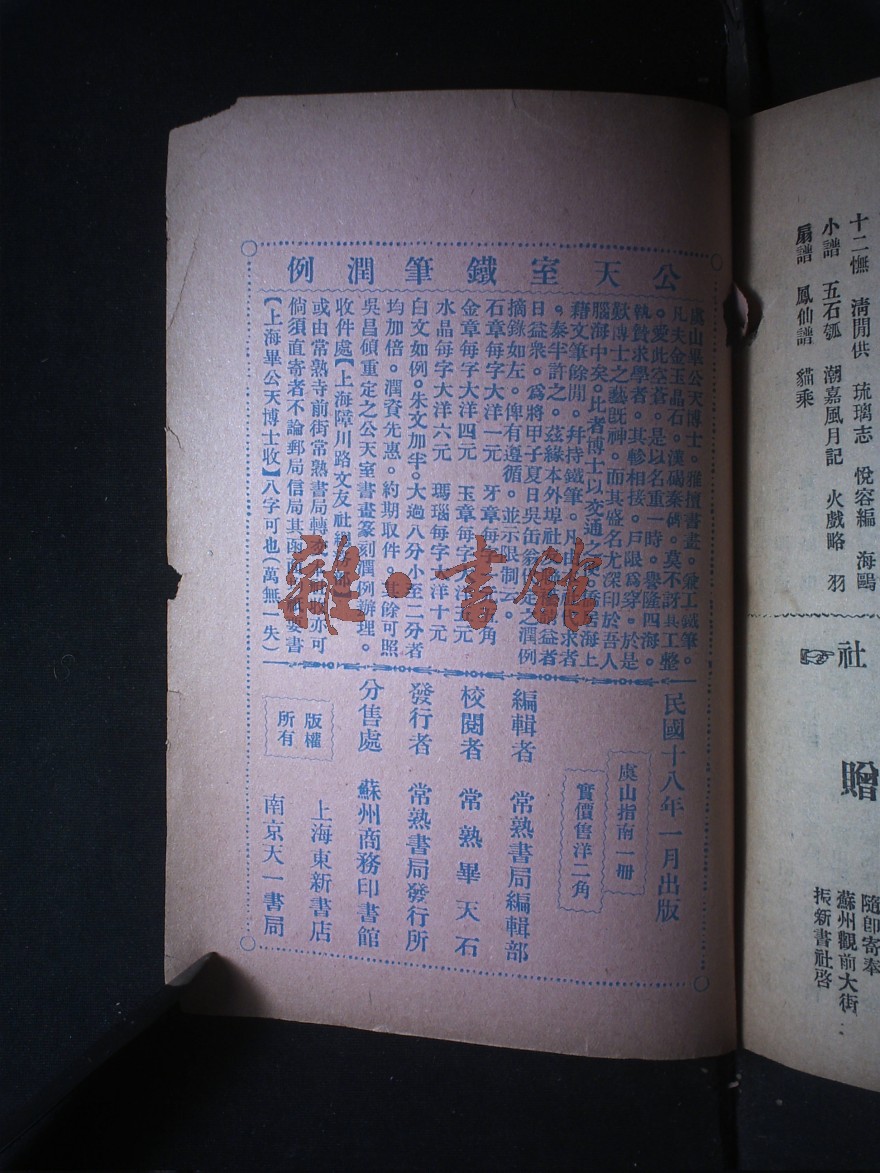 十二憮 淸閒供 琉璃志 悅容編 海鷗
小譜 五石瓠 潮嘉風月記 火戲略 羽
扇譜 鳳仙譜 貓乘
社
贈
隨卽寄奉
蘇州觀前大街
振新書社啓
公天室鐵筆潤例
虞山畢公天博士。雅擅書畫。兼工鐵筆。
凡夫金玉晶石。漢碣秦碑。莫不訝其工整
。愛此空蒼。是以名重一時。譽隆四海。
執贄求學者。其軫相接。戶限爲穿。於是
歎博士之藝旣神。而其盛名尤深印於吾人
腦海中矣。比者博士以交通之 海上
藉文筆餘閒。幷持鐵筆。凡由 求者
。泰半許之。茲緣本外埠社友 益者
日益衆。爲將甲子夏日吳缶翁 定之潤例
摘錄如左。俾有遵循。並示限制云。
石章每字大洋一元 牙章每字 角
金章每字大洋四元 玉章每字大洋五元
水晶每字大洋六元 瑪瑙每字大洋十元
白文如例。朱文加半。大過八分小至二分者
均加倍。潤資先惠。約期取件。其餘可照
吳昌碩重定之公天室書畫篆刻潤例辦理。
收件處【上海障川路文友社
或由常熟寺前街常熟書局轉交 亦可
倘須直寄者不論郵局信局其函 要書
【上海畢公天博士收】八字可也(萬無一失)
民國十八年一月出版
虞山指南一册
實價售洋二角
編輯者 常熟書局編輯部
校閱者 常熟畢天石
發行者 常熟書局發行所
分售處 蘇州商務印書館
上海東新書店
南京天一書局
版權
所有
雜·書館